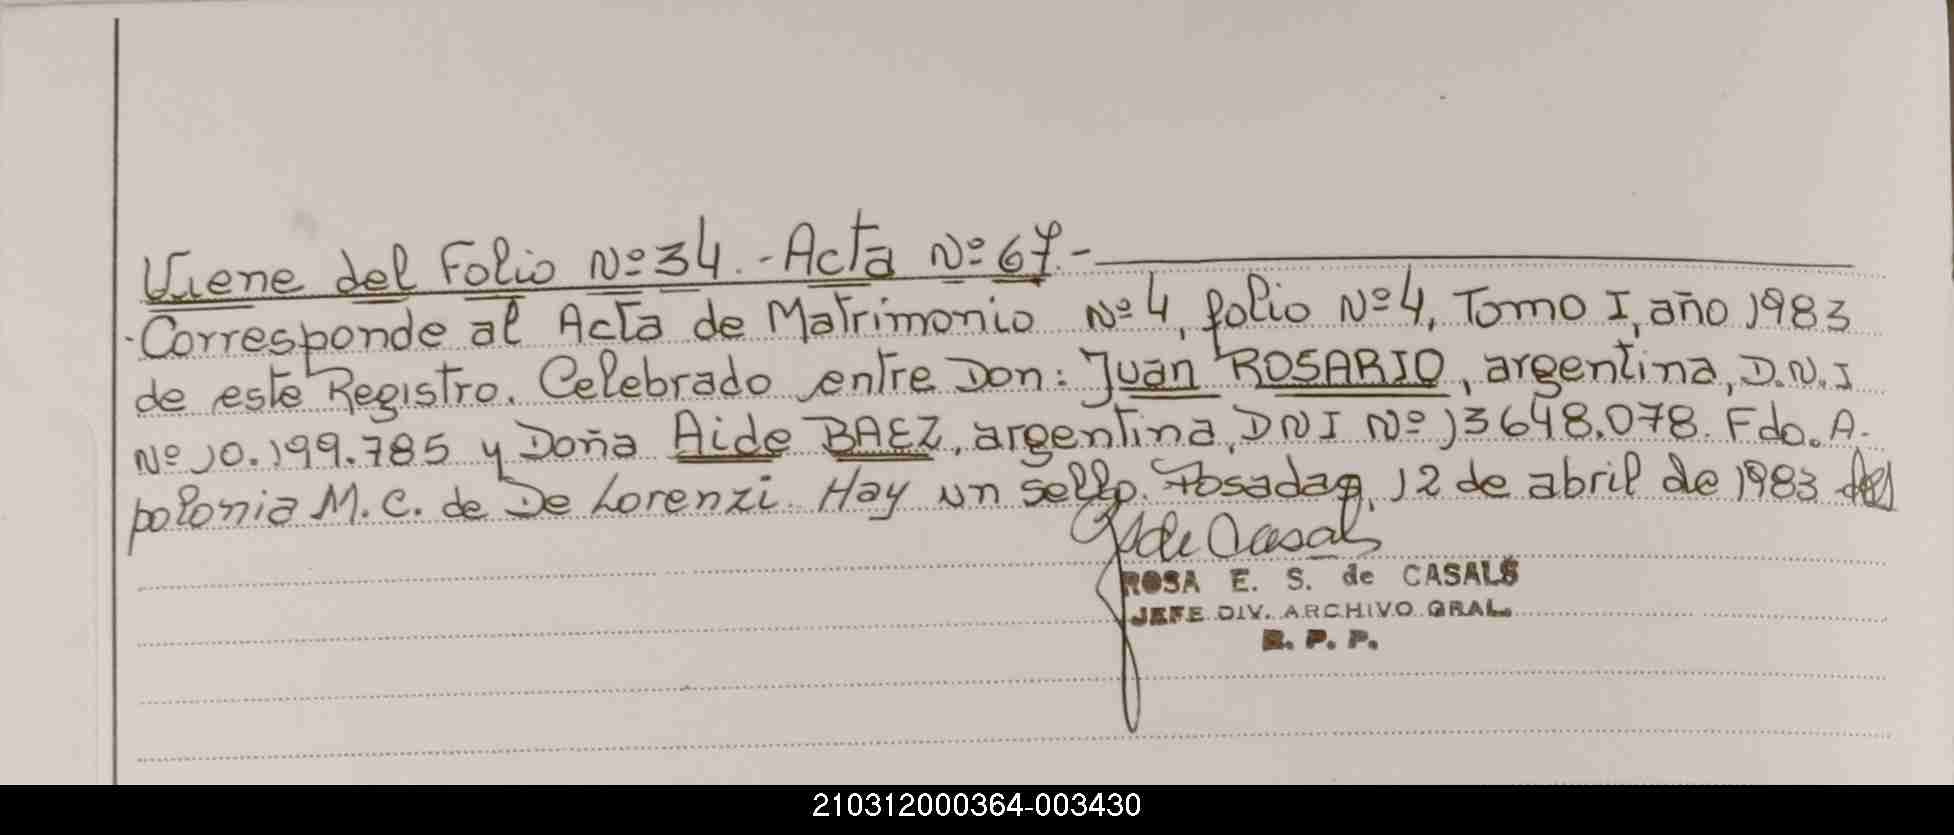 Viene del Folio Nº 34.- Acta Nº 67.-
-Corresponde al Acta de Matrimonio Nº 4, folio Nº 4, Tomo I, año 1983
de este Registro. Celebrado entre Don: Juan ROSARIO, argentina, D.N.I
Nº 10.199.785 y Doña Aide BAEZ, argentina, DNI Nº 13648.078. Fdo. A-
polonia M. C. de De Lorenzi. Hay un sello. Posadas, 12 de abril de 1983
de Casals
ROSA E. S. de CASALS
JEFE DIV. ARCHIVO GRAL.
R. P. P.
210312000364-003430